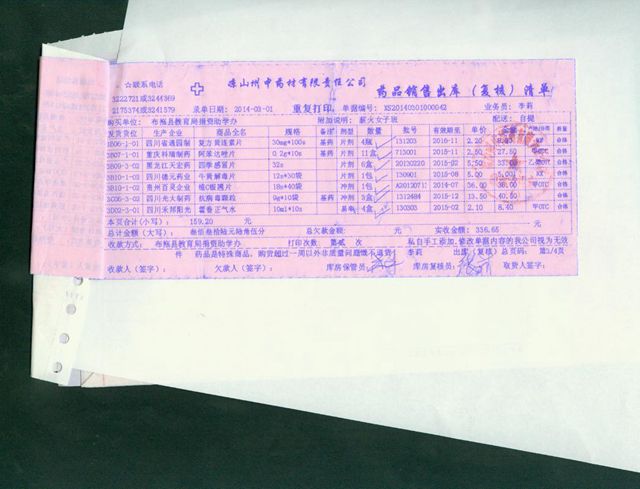 ☆联系电话 凉山州中药材有限责任公司
3222721或3244369 药品销售出库(复核)清单
2175374或3241579 录单日期: 2014-03-01 重复打印, 单据编号: XS20140301000042 业务员: 李莉
购买单位: 布拖县教育局捐资助学办 附加说明: 薪火女子班 配送: 自提
发货货位 生产企业 商品全名 规格 备注 剂型 数量 批号 有效期至 单价 金额 质量
3B06-1-01 四川省通园制 复方黄连素片 30mg*100s 基药 片剂 4瓶 131203 2015-11 2.20 8.80 合格
3B07-1-01 重庆科瑞制药 阿苯达唑片 0.2g*10s 基药 片剂 11盒 713001 2015-11 2.50 27.50 甲OTC 合格
3B09-3-02 黑龙江天宏药 四季感冒片 32s 片剂 6盒 20130220 合格
3B10-1-01 四川德元药业 牛黄解毒片 12s*30袋 片剂 1包 130901 2015-08 合格
3B10-1-02 贵州百灵企业 维C银翘片 18s*40袋 冲剂 1包 2014-07 36.00 甲OTC 合格
3C06-3-02 四川光大制药 抗病毒颗粒 9g*10袋 基药 冲剂 3盒 1312484 2015-12 13.50 40.50 合格
3D02-3-01 四川禾邦阳光 藿香正气水 10ml*10s 4盒 130303 2015-02 2.10 8.40 甲OTC 合格
本页合计(小写): 159.20 元 元
总计金额(大写): 叁佰叁拾陆元陆角伍分 总欠款金额: 元 实收金额: 336.65
收款方式: 布拖县教育局捐资助学办 打印次数 第贰 次 私自手工添加,修改单据内容的我公司视为无效
件 药品是特殊商品, 购货超过一周以外非质量问题慨不退货! 李莉 出库(复核)总页码: 第3/4页
收款人(签字): 欠款人(签字): 库房保管员: 库房复核员: 取货人签字: